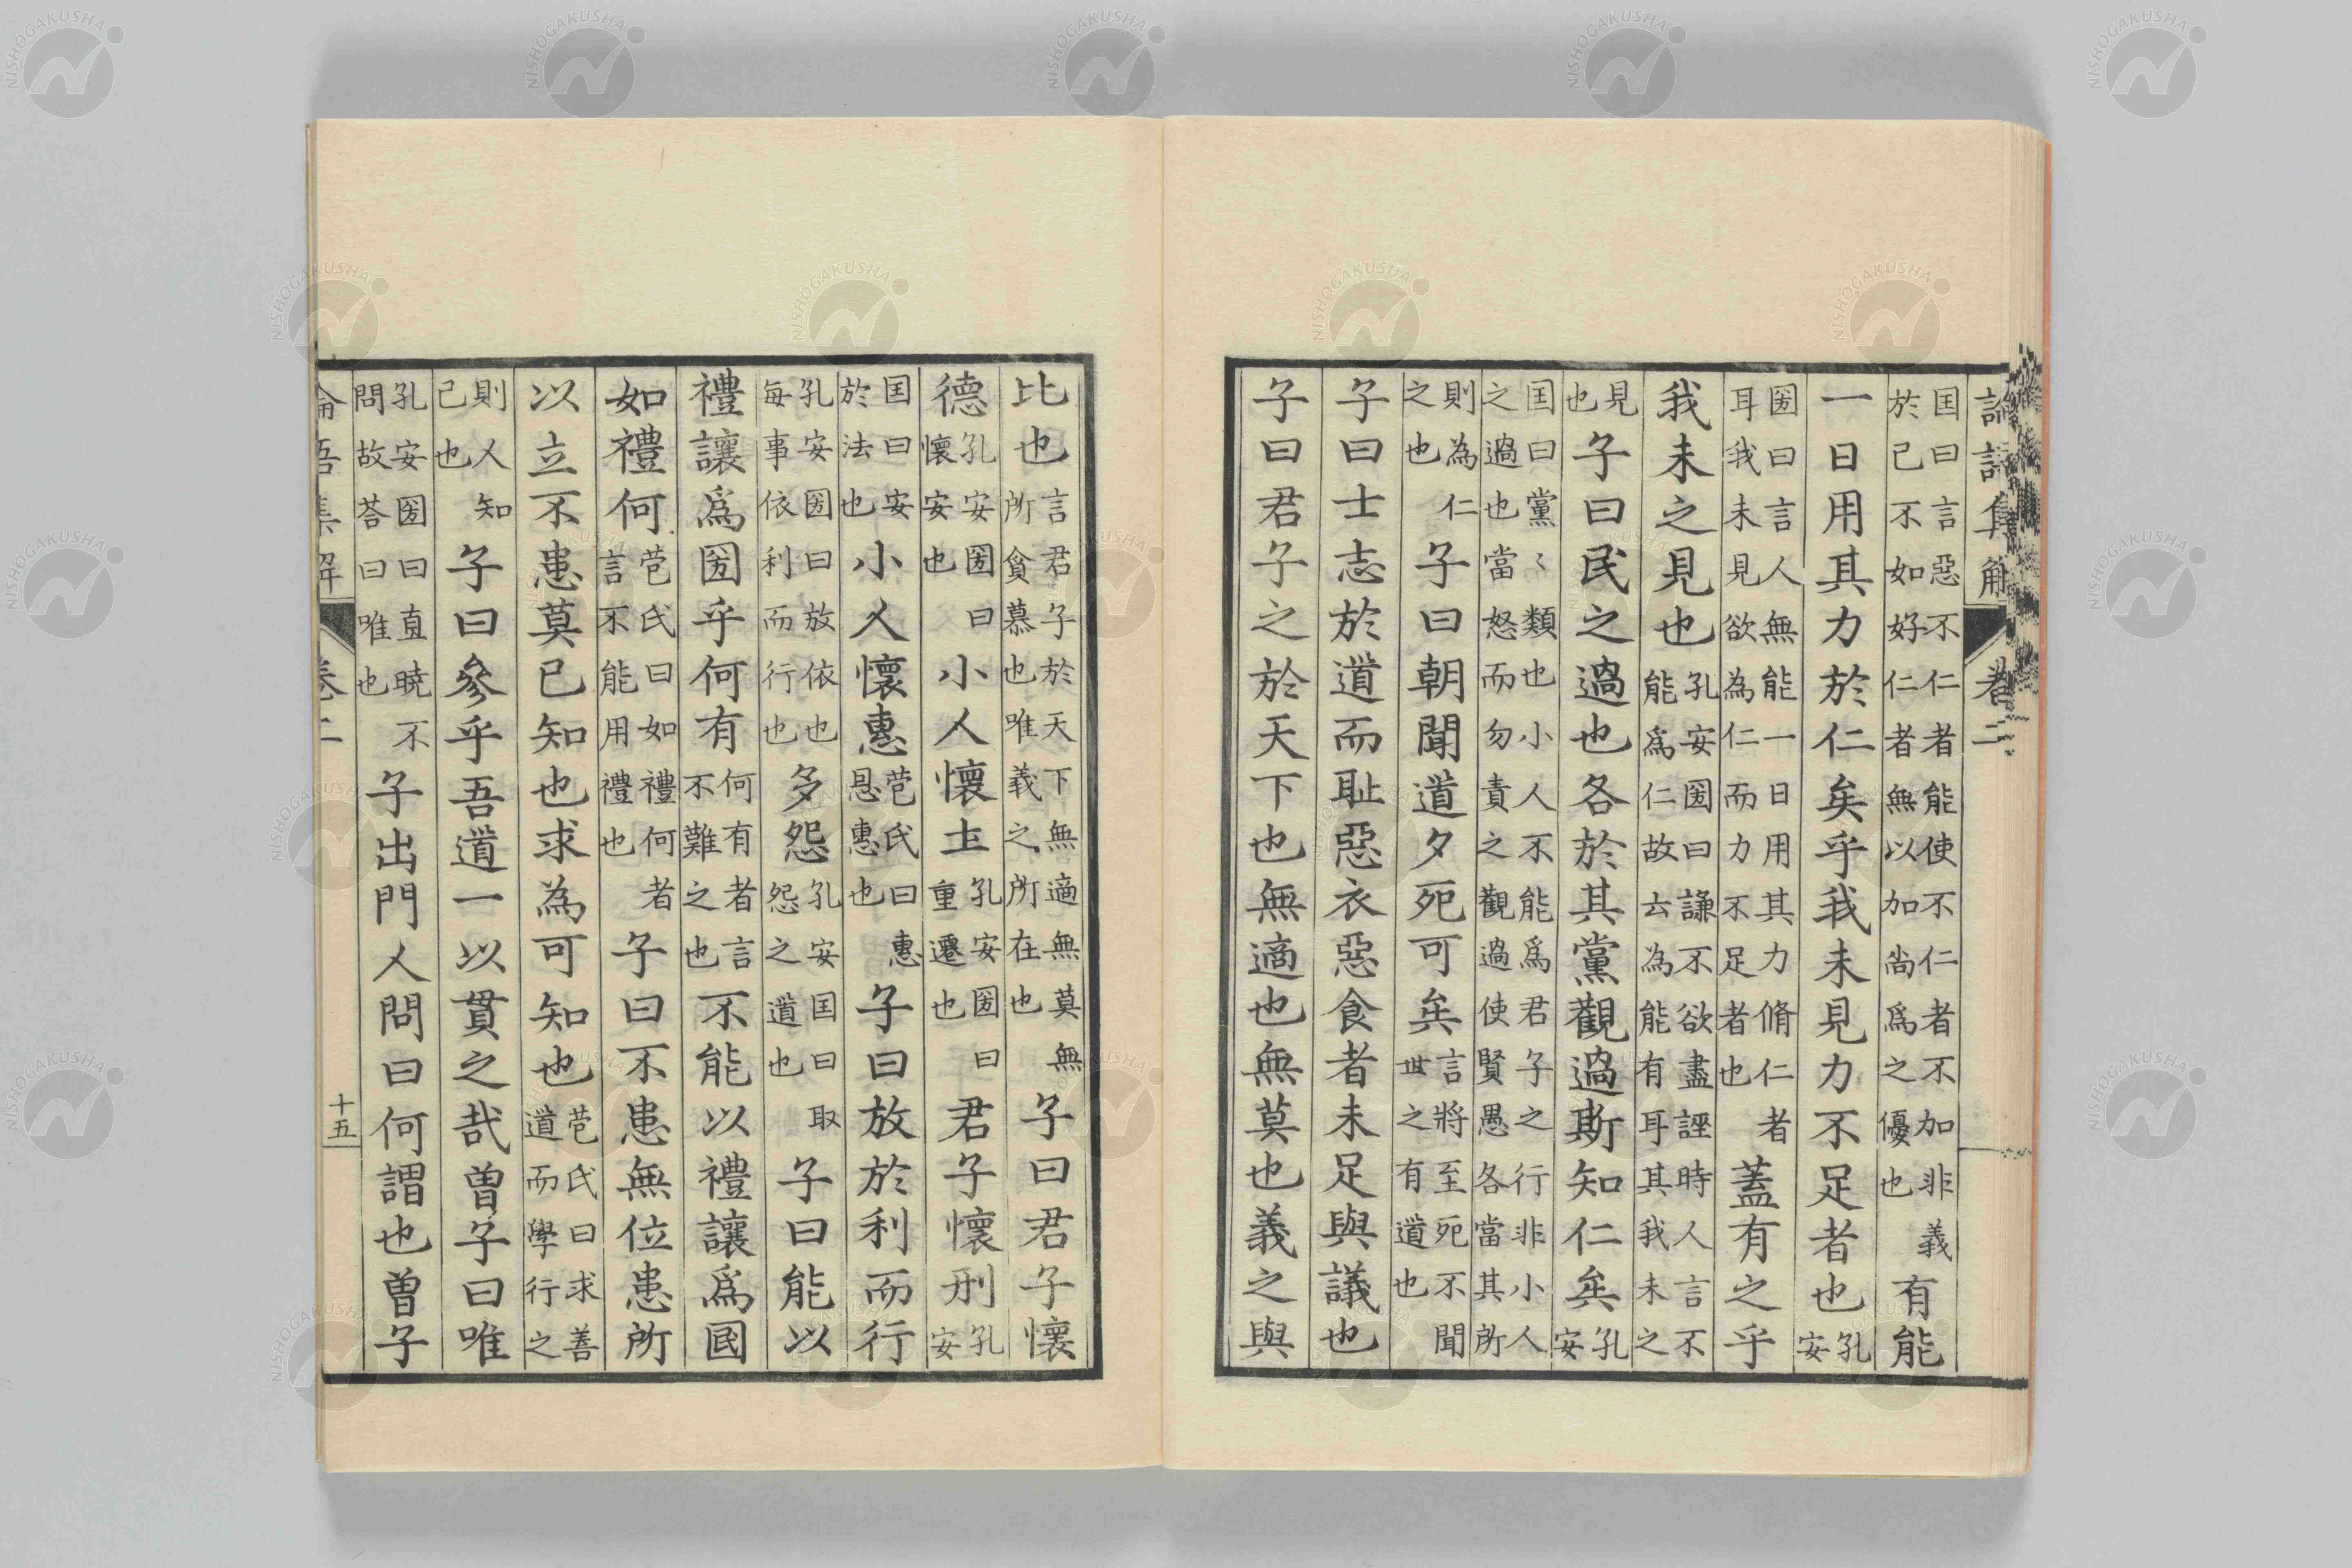 論語集解 卷二
囯曰言惡不仁者能使不仁者不加非義
於己不如好仁者無以加尚爲之優也
有能
一日用其力於仁矣乎我未見力不足者也孔安
圀曰言人無能一日用其力脩仁者
耳我未見欲為仁而力不足者也
蓋有之乎
我未之見也
孔安圀曰謙不欲盡誣時人言不
能爲仁故云為能有耳其我未之
見也子曰民之過也各於其黨觀過斯知仁矣孔安
囯曰黨〻類也小人不能爲君子之行非小人
之過也當恕而勿責之觀過使賢愚各當其所
則為仁
之也
子曰朝聞道夕死可矣
言將至死不聞
世之有道也
子曰士志於道而耻惡衣惡食者未足與議也
子曰君子之於天下也無適也無莫也義之與
比也
言君子於天下無適無莫無
所貪慕也唯義之所在也
子曰君子懷
德
孔安圀曰
懷安安也
小人懷土
孔安圀曰
重遷也
君子懷刑孔安
囯曰安
於法也
小人懷惠
苞氏曰惠
恩惠也
子曰放於利而行
孔安圀曰放依也
每事依利而行也
多怨
孔安囯曰取
怨之道也
子曰能以
禮讓爲圀乎何有
何有者言
不難之也
不能以禮讓爲國
如禮何
苞氏曰如禮何者
言不能用禮也
子曰不患無位患所
以立不患莫己知也求為可知也
苞氏曰求善
道而學行之
則人知
己也
子曰參乎吾道一以貫之哉曽子曰唯
孔安圀曰直曉不
問故荅曰唯也
子出門人問曰何謂也曽子
論語集解 卷二 十五
NISHOGAKUSHA